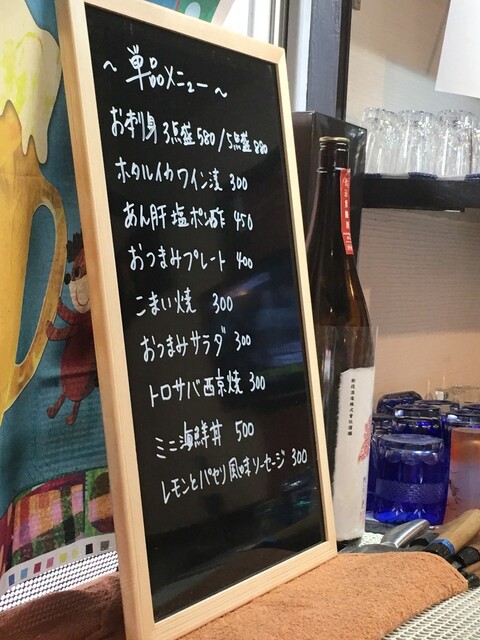 ～単品メニュー～
お刺身 3点盛580/5点盛880
ホタルイカワイン漬 300
あん肝塩ポン酢 450
おつまみプレート 400
こまい焼 300
おつまみサラダ 300
トロサバ西京焼 300
ミニ海鮮丼 500
レモンとパセリ風味ソーセージ 300